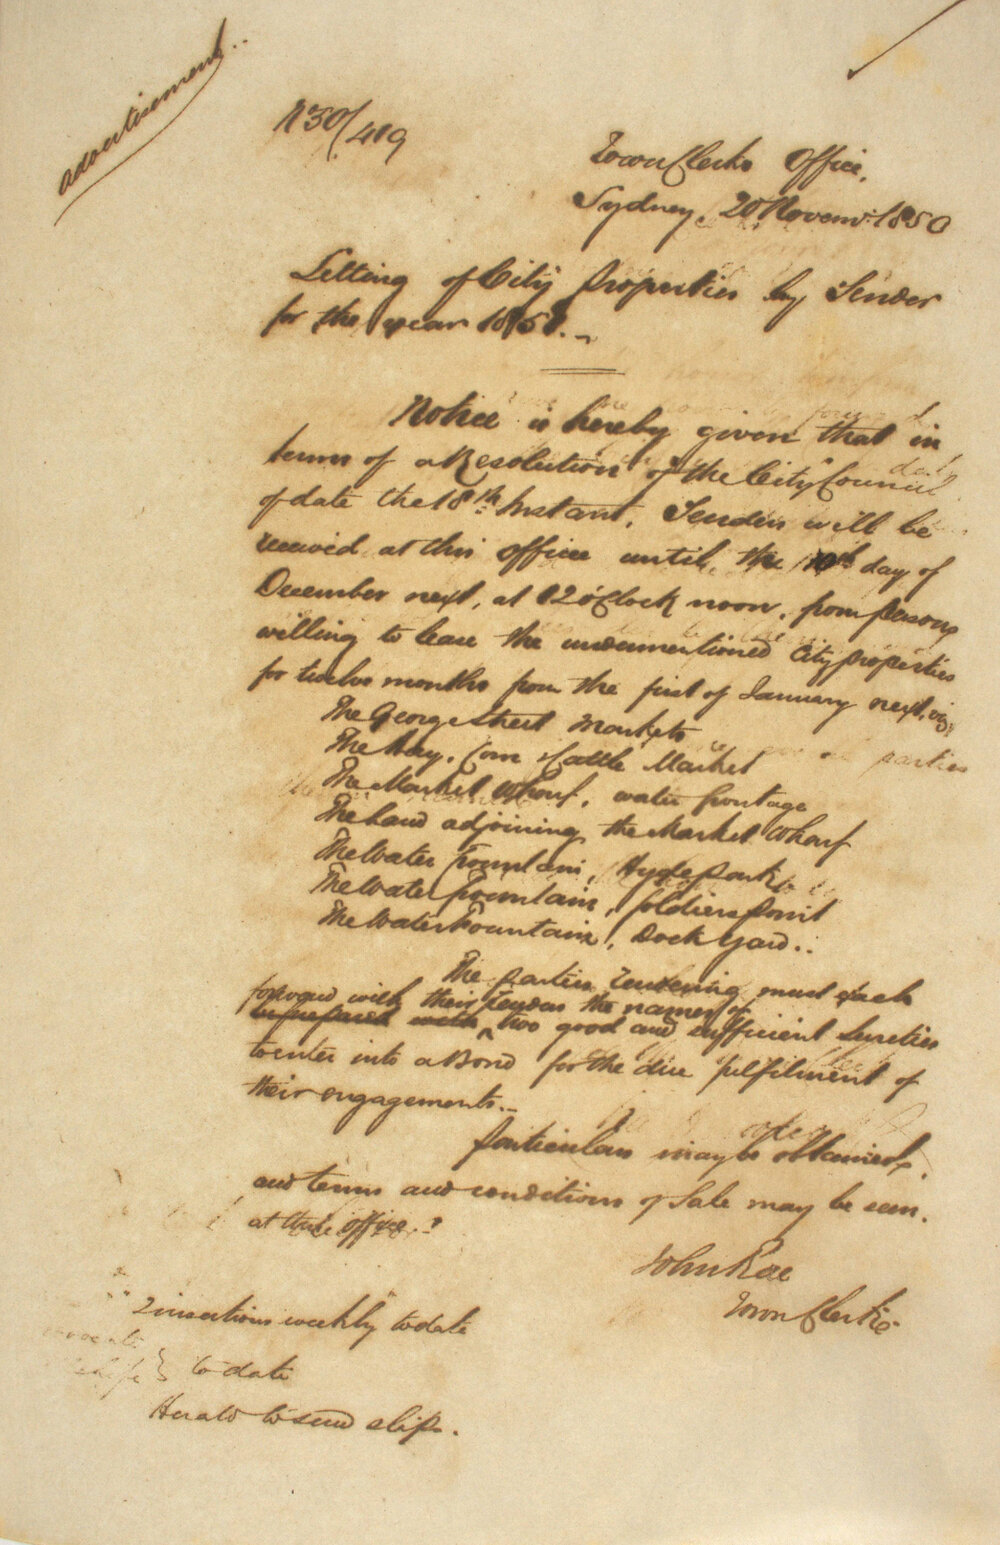 Advertisement
N 50/419
Town Clerks Office,
Sydney, 20 Novemr. 1850
Letting of City Properties by Tender
for the year 1851.
Notice is hereby given that in
terms of a Resolution of the City Council
of date the 18th Instant, Tenders will be
received at this office until the 10th day of
December next, at 12 o'Clock noon, from persons
willing to lease the undermentioned City properties
for twelve months from the first of January next, viz:
The George Street Markets
The Hay, Corn & Cattle Market
The Market Wharf, water frontage
The Land adjoining the Market Wharf
The Water Fountain, Hyde Park
The Water Fountain, Soldiers Point
The Water Fountain, Dock Yard..
The parties tendering must each
forward with their Tenders the names of
be prepared with two good and sufficient Sureties
to enter into a Bond for the due fulfilment of
their engagements..
Particulars may be obtained,
and terms and conditions of Sale may be seen.
at this office.
John Rae
Town Clerk
"2 insertions weekly" to date
to date
Herald to send slip.